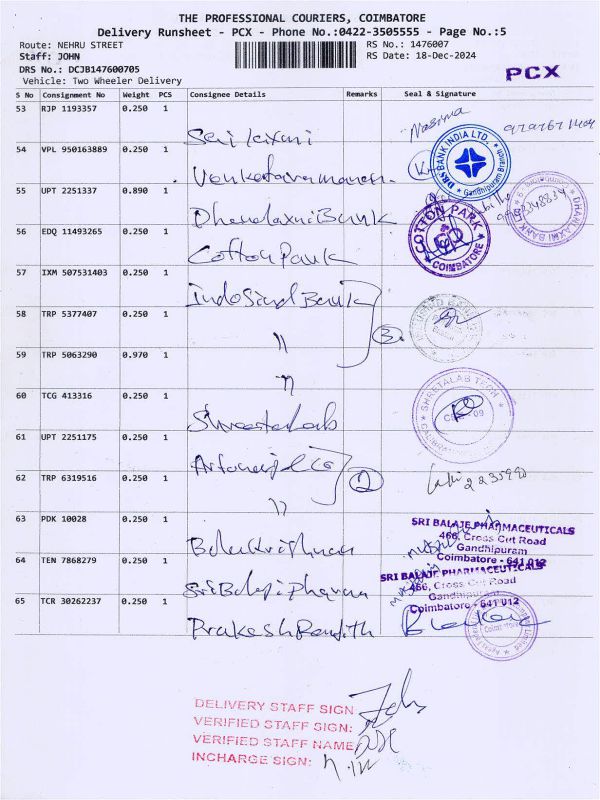 THE PROFESSIONAL COURIERS, COIMBATORE
Delivery Runsheet - PCX - Phone No.:0422-3505555 - Page No.:5
Route: NEHRU STREET
RS No.: 1476007
Staff: JOHN
RS Date: 18-Dec-2024
DRS No.: DCJB147600705
PCX
Vehicle: Two Wheeler Delivery
S No Consignment No Weight PCS Consignee Details Remarks Seal & Signature
53 RJP 1193357 0.250 1
54 VPL 950163889 0.250 1
DBS BANK INDIA LTD. Gandhipuram Branch
55 UPT 2251337 0.890 1 Dhanalaxmi Bank
DHANLAXMI BANK
COTTON PARK COIMBATORE
56 EDQ 11493265 0.250 1 Cotton Park
57 IXM 507531403 0.250 1 IndoSind Bank
58 TRP 5377407 0.250 1 "
3
59 TRP 5063290 0.970 1 "
60 TCG 413316 0.250 1
SHRETALAB TECH
61 UPT 2251175 0.250 1
62 TRP 6319516 0.250 1 "
2
63 PDK 10028 0.250 1 Balakrishnan
SRI BALAJE PHARMACEUTICALS
466, Cross Cut Road
Gandhipuram
Coimbatore - 641 012
64 TEN 7868279 0.250 1 Sri Balaji Pharma
SRI BALAJE PHARMACEUTICALS
466, Cross Cut Road
Gandhipuram
Coimbatore - 641 012
65 TCR 30262237 0.250 1 Prakash Ranjith
DELIVERY STAFF SIGN
VERIFIED STAFF SIGN:
VERIFIED STAFF NAME
INCHARGE SIGN: